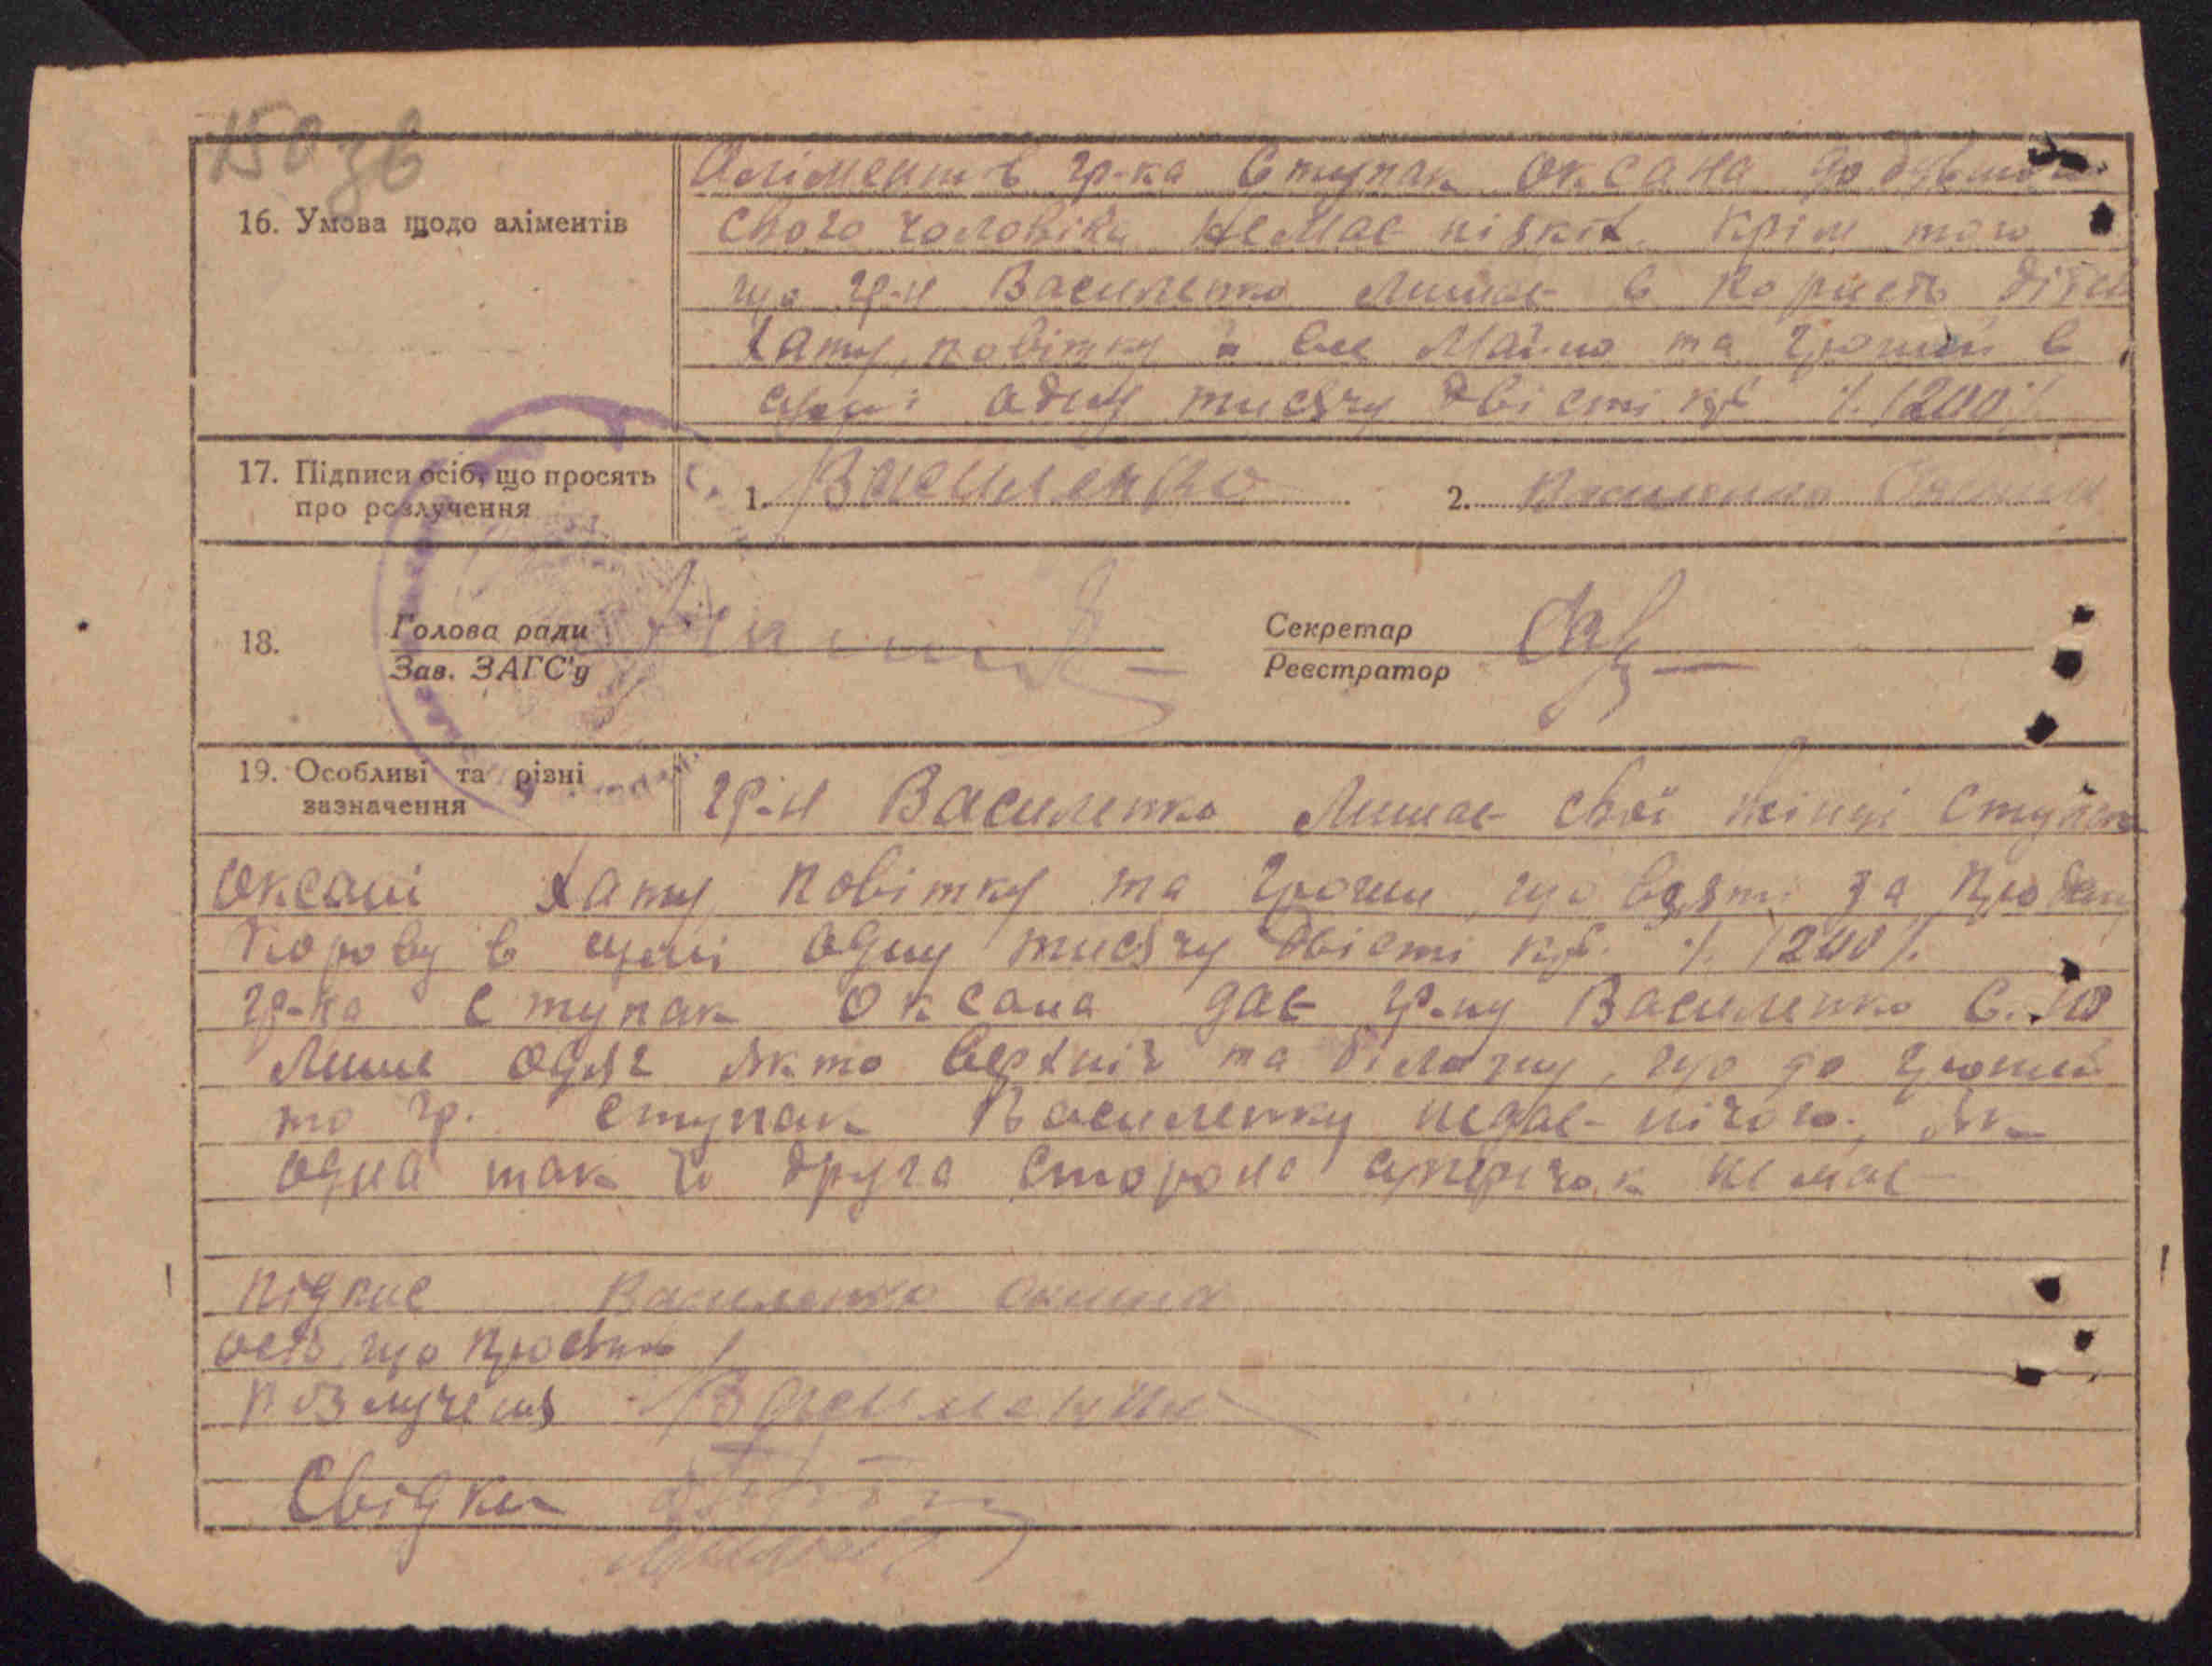 150 зв
Аліментів гр-ка Ступак Оксана до бувшого
16. Умова щодо аліментів
свого чоловіка немає ніяких. Крім того
що гр-н Василенко лишає в користь дітей
хату, повітку і все майно та грошей в
сумі одну тисячу двісті крб ./. 1200 ./.
17. Підписи осіб, що просять
про розлучення
1. Василенко 2. Василенко Оксана
18. Голова ради
Зав. ЗАГС'у
Секретар
Реєстратор
19. Особливі та різні
зазначення
гр-н Василенко лишає свої жінці Ступак
Оксані хату, повітку та гроши, що взяті за продану
корову в сумі одну тисячу двісті крб. ./. 1200 ./.
гр-ка Ступак Оксана дає гр-ну Василенко
лише одяг як то верхній та білизну, що до грошей
то гр. Ступак Василенку недає нічого, як
одна так й друга сторона суперечок не має
підпис Василенко Оксана
осіб, що просять
розлучення
Свідки